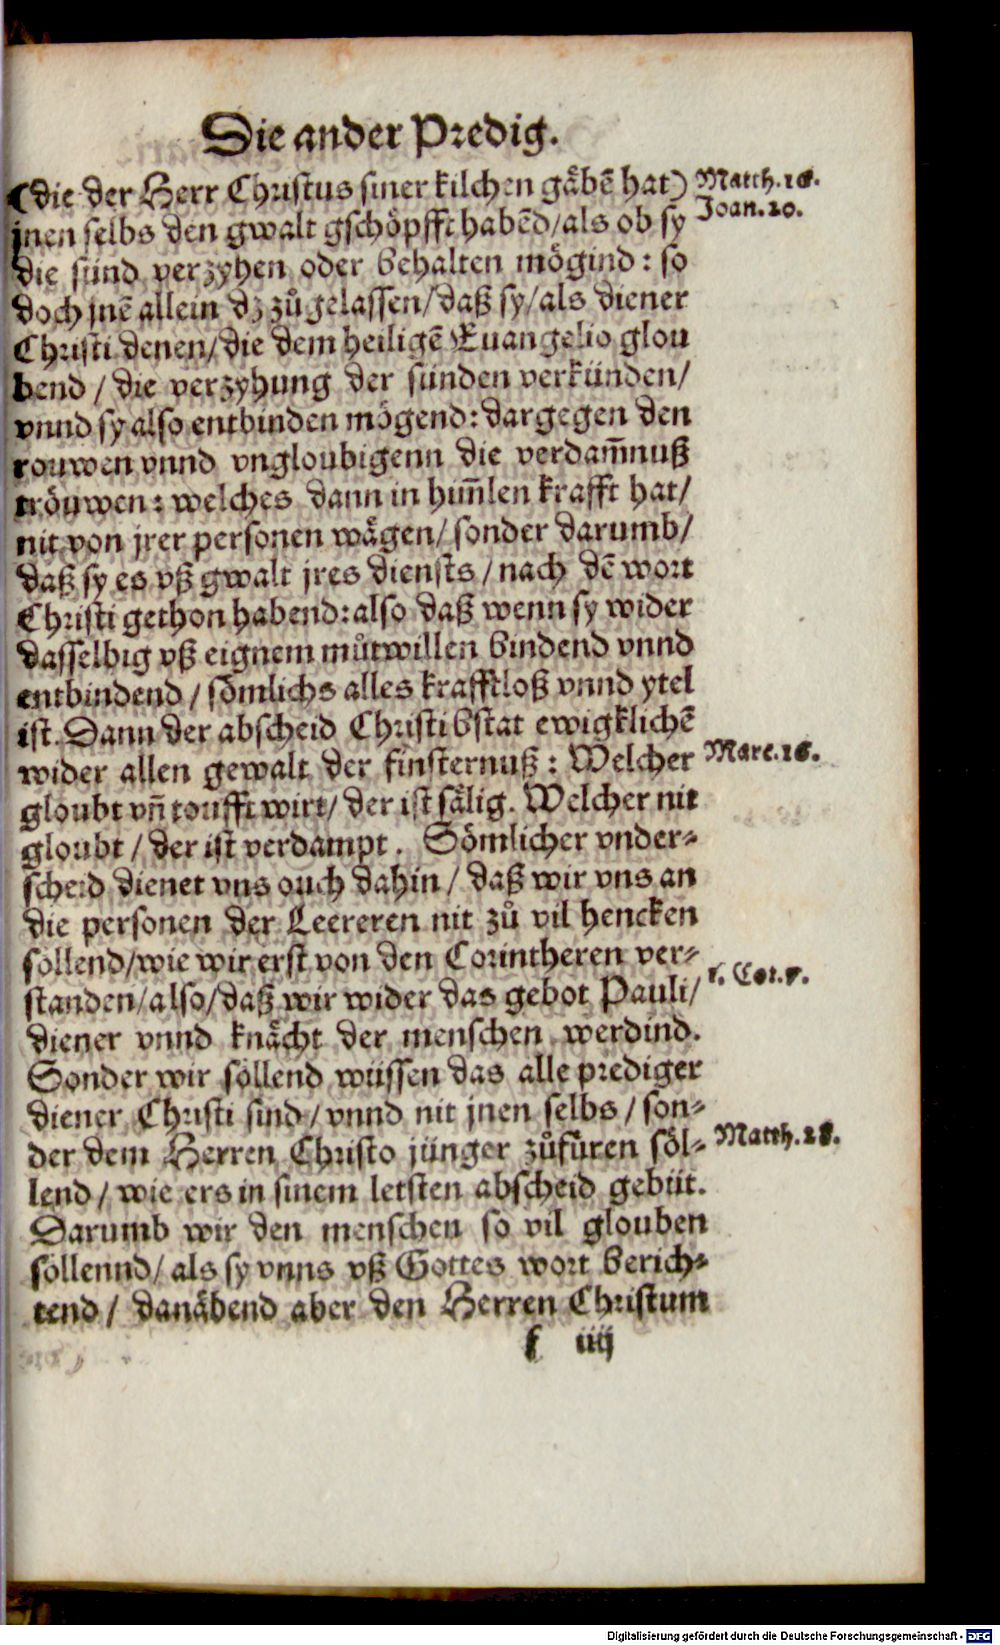 Die ander Predig.
(die der Herr Christus siner kilchen gåbẽ hat)
Matth.16.
Joan.20.
jnen selbs den gwalt gschöpfft habẽd/als ob sy
die sünd verzyhen oder behalten mögind: so
doch jnẽ allein dz zůgelassen/daß sy/als diener
Christi denen/die dem heiligẽ Euangelio glou
bend / die verzyhung der sünden verkünden/
vnnd sy also entbinden mögend: dargegen den
rouwen vnnd vngloubigenn die verdam̃nuß
tröuwen: welches dann in him̃len krafft hat/
nit von jrer personen wägen/ sonder darumb/
daß sy es vß gwalt jres diensts / nach dẽ wort
Christi gethon habend: also daß wenn sy wider
dasselbig vß eignem můtwillen bindend vnnd
entbindend / sömlichs alles krafftloß vnnd ytel
ist. Dann der abscheid Christi bstat ewigklichẽ
wider allen gewalt der finsternuß : Welcher
Marc.16.
gloubt vñ toufft wirt/ der ist sälig. Welcher nit
gloubt / der ist verdampt. Sömlicher vnder-
scheid dienet vns ouch dahin / daß wir vns an
die personen der Leereren nit zů vil hencken
söllend/wie wir erst von den Corintheren ver-
standen/also/daß wir wider das gebot Pauli/
1. Cor.7.
diener vnnd knächt der menschen werdind.
Sonder wir söllend wüssen das alle prediger
diener Christi sind / vnnd nit jnen selbs / son-
der dem Herren Christo jünger zůfüren söl-
Matth.28.
lend / wie ers in sinem letsten abscheid gebüt.
Darumb wir den menschen so vil glouben
söllennd/ als sy vnns vß Gottes wort berich-
tend / danäbend aber den Herren Christum
f iiij
Digitalisierung gefördert durch die Deutsche Forschungsgemeinschaft - DFG